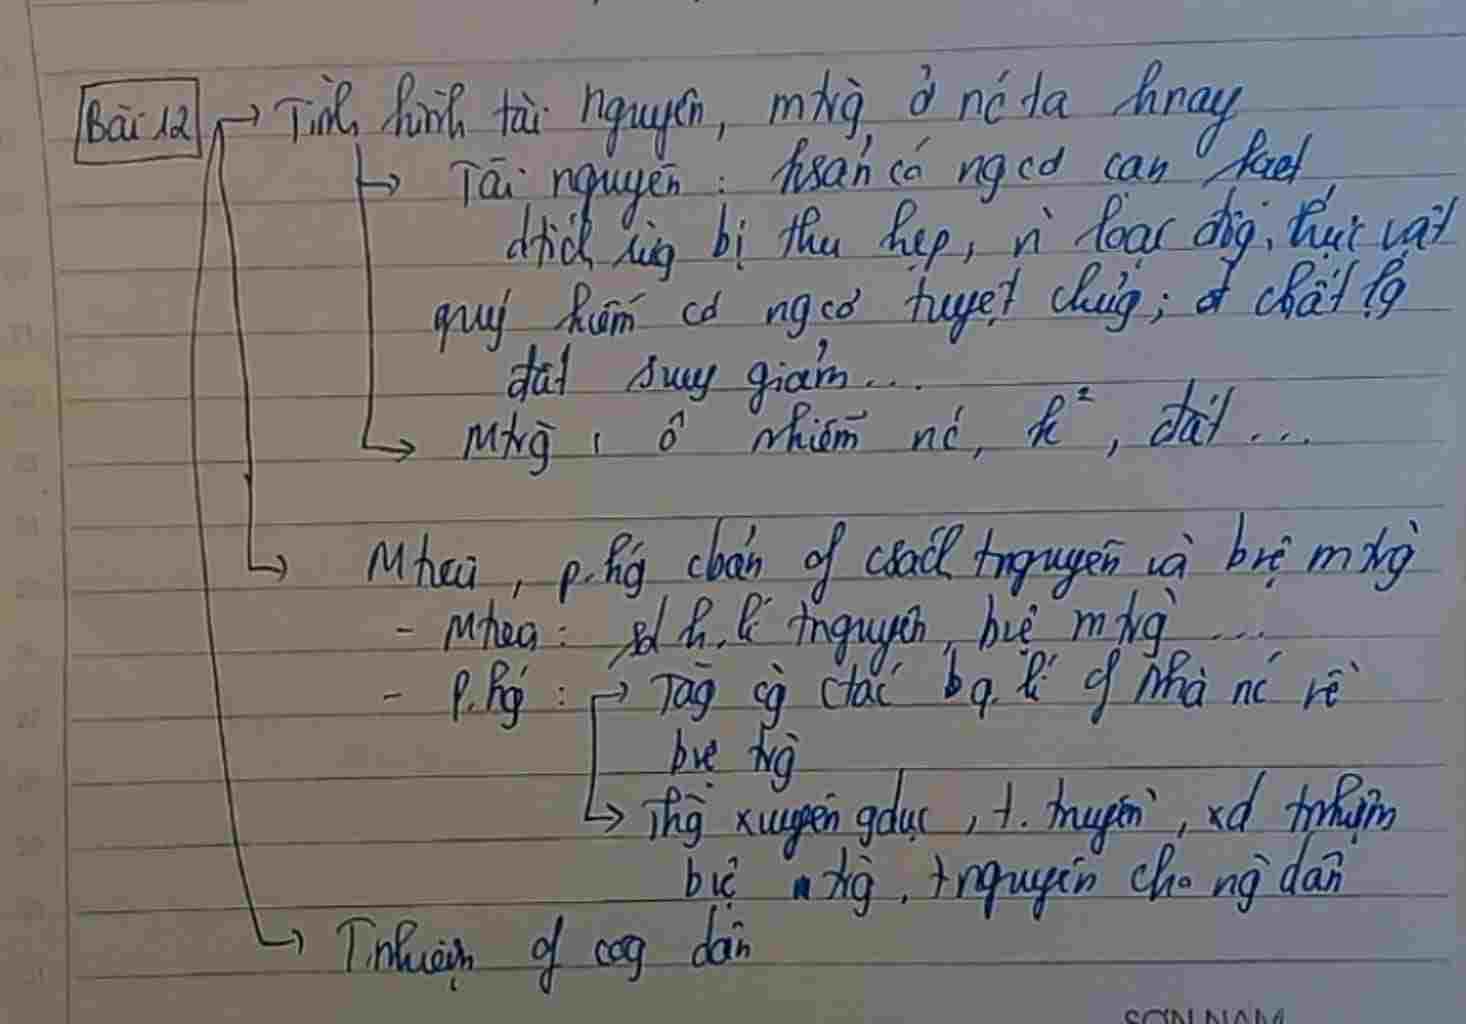 Bài 12 → Tình hình tài nguyên, mtrg̀ ở nć ta hnay
→ Tài nguyên : ksản có ng cơ cạn kiệt
dtích rừg bị thu hẹp, n` loài độg, thực vật
quý hiếm có ng cơ tuyệt chủg; chất lg
đất suy giảm...
→ Mtrg̀ : ô nhiễm nć, k², đất ...
→ Mtiêu, p.hg cbản of csách tnguyên và bvệ mtrg̀
- Mtiêu : sd h.lí tnguyên, bvệ mtrg̀ ...
- P.hg : → Tăg cg̀ ctác q.lí of Nhà nć về
bvệ trg̀
→ Thg̀ xuyên gdục, t.truyền, xd tnhiệm
bvệ mtrg̀, tnguyên cho ng` dân
→ T.nhiệm of côg dân
SƠN NAM